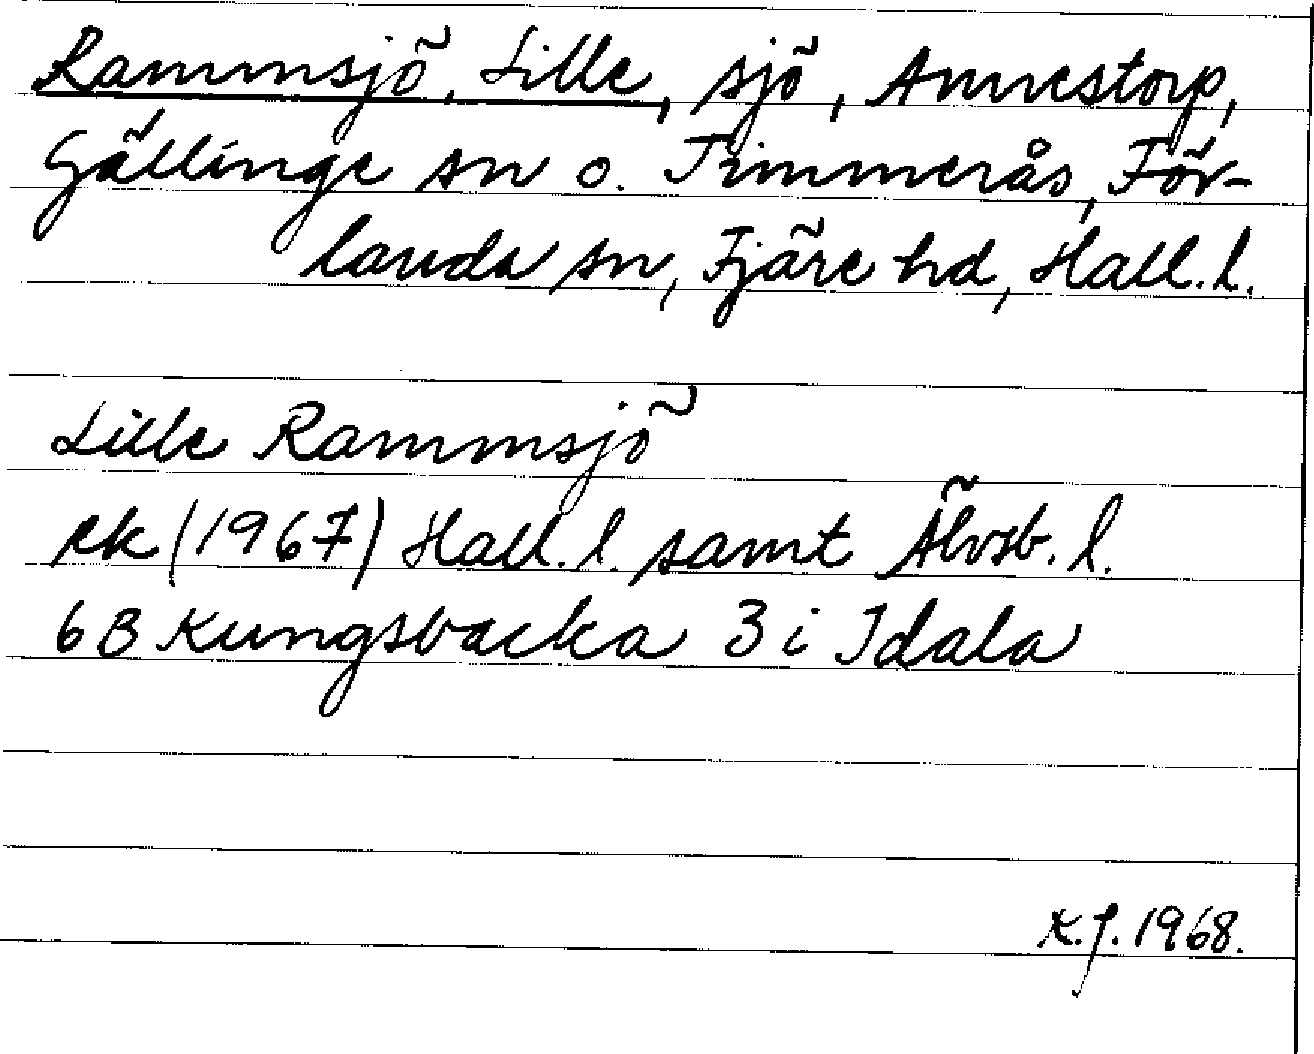 Rammsjö, Lille, sjö, Annestorp,
Gällinge sn o. Timmerås, För-
landa sn, Fjäre hd, Hall. l.
Lille Rammsjö
ek (1967) Hall. l. samt Älvsb. l.
6B Kungsbacka 3 i Idala
K.J. 1968.